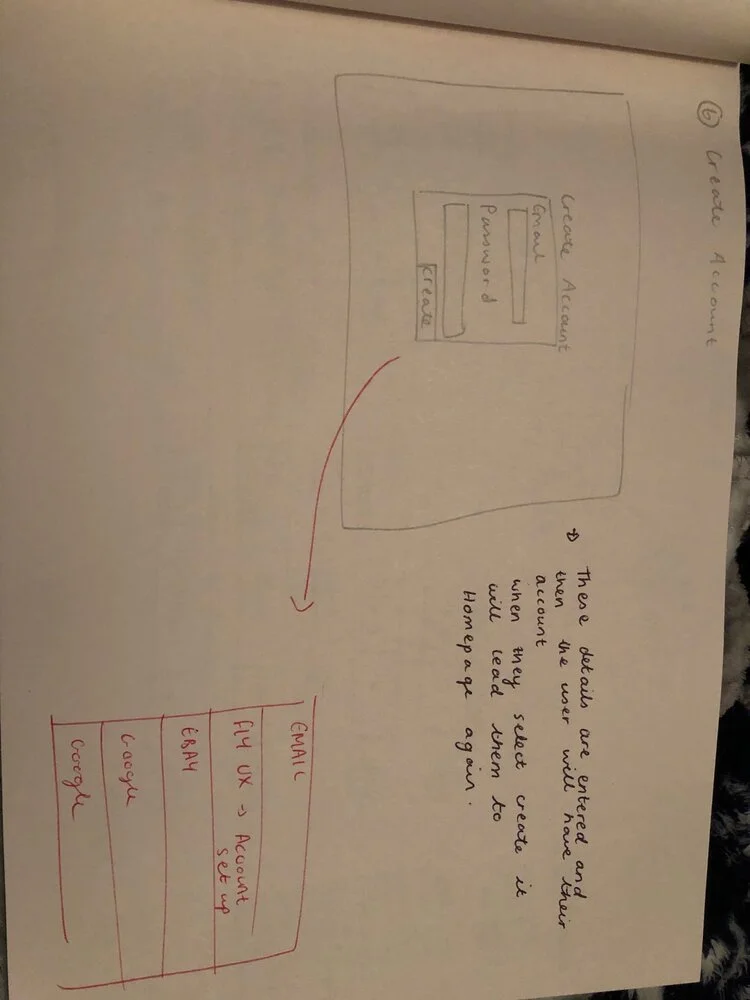 6 Create Account
Create Account
Email
Password
Create
These details are entered and
then the user will have their
account
when they select create it
will lead them to
Homepage again.
EMAIL
Fly UX → Account
set up
EBAY
Google
Google